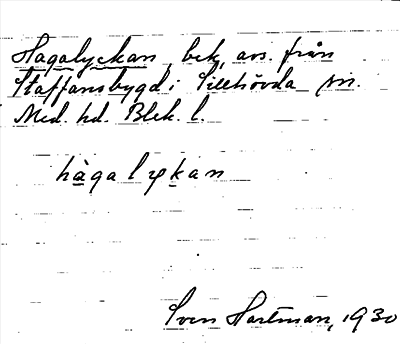 Hagalyckan, bek, avs. från
Staffansbygd i Tillhövda sn.
Med. hd. Blek. l.
hàgalykan
Sven Hartman, 1930